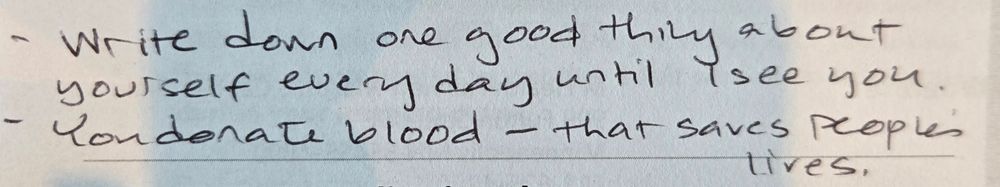 - Write down one good thing about
yourself every day until I see you.
- You donate blood - that saves people's
lives.